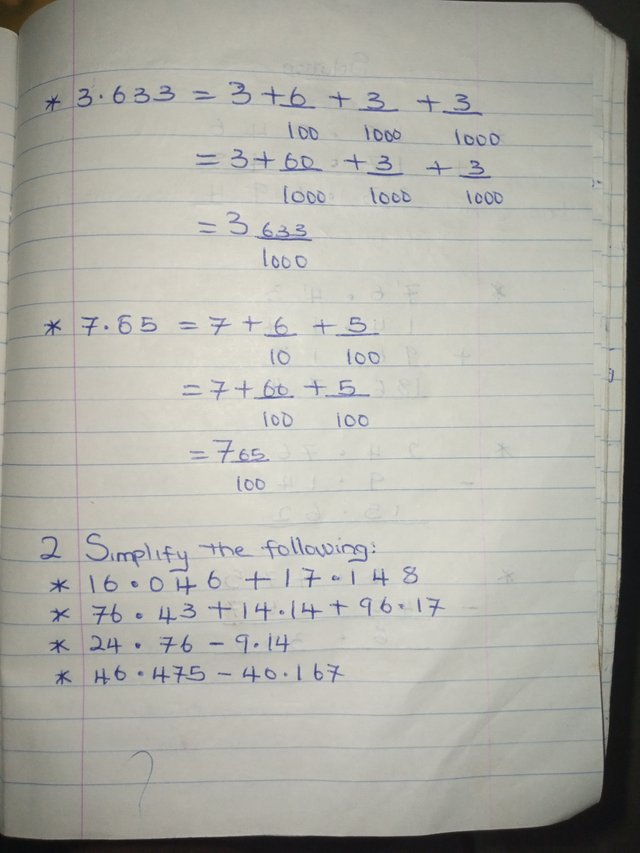 * 3.633 = 3 + 6/100 + 3/1000 + 3/1000
= 3 + 60/1000 + 3/1000 + 3/1000
= 3 633/1000
* 7.65 = 7 + 6/10 + 5/100
= 7 + 60/100 + 5/100
= 7 65/100
2 Simplify the following:
* 16.046 + 17.148
* 76.43 + 14.14 + 96.17
* 24.76 - 9.14
* 46.475 - 40.167
?